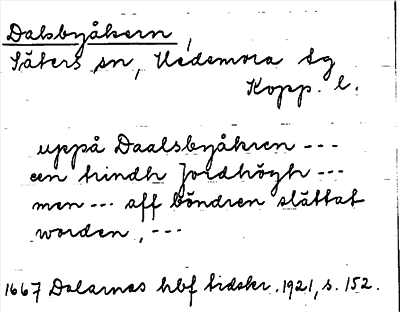 Dalsbyåkern,
Säters sn, Hedemora tg
Kopp. l.
uppå Daalsbyåkren ---
een trindh Jordhögh ---
men --- aff böndren slättat
worden, ---
1667 Dalarnas hbf tidskr. 1921, s. 152.